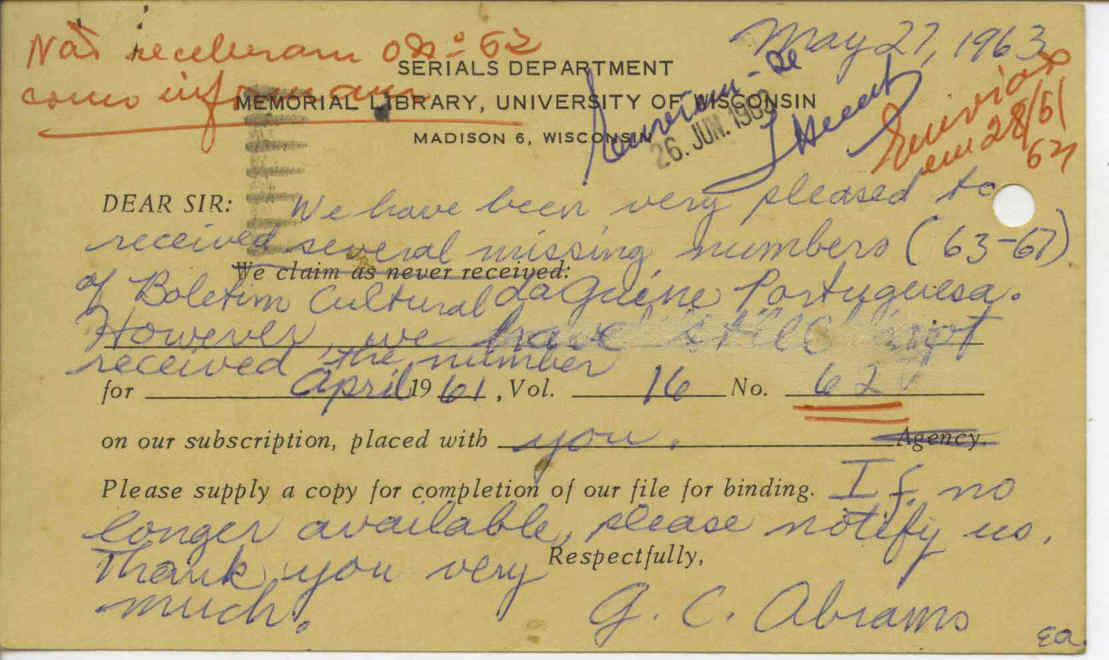 Não receberam o nº 62
como informam
May 27, 1963
SERIALS DEPARTMENT
MEMORIAL LIBRARY, UNIVERSITY OF WISCONSIN
MADISON 6, WISCONSIN
26. JUN. 1963
em 28/6/
DEAR SIR: We have been very pleased to
received several missing numbers (63-67)
We claim as never received:
of Boletim Cultural da Guine Portuguesa.
However, we have still not
received the number
for April 1961, Vol. 16 No. 62
on our subscription, placed with you. Agency.
Please supply a copy for completion of our file for binding. If no
longer available, please notify us.
Respectfully,
Thank you very
much.
G. C. Abrams